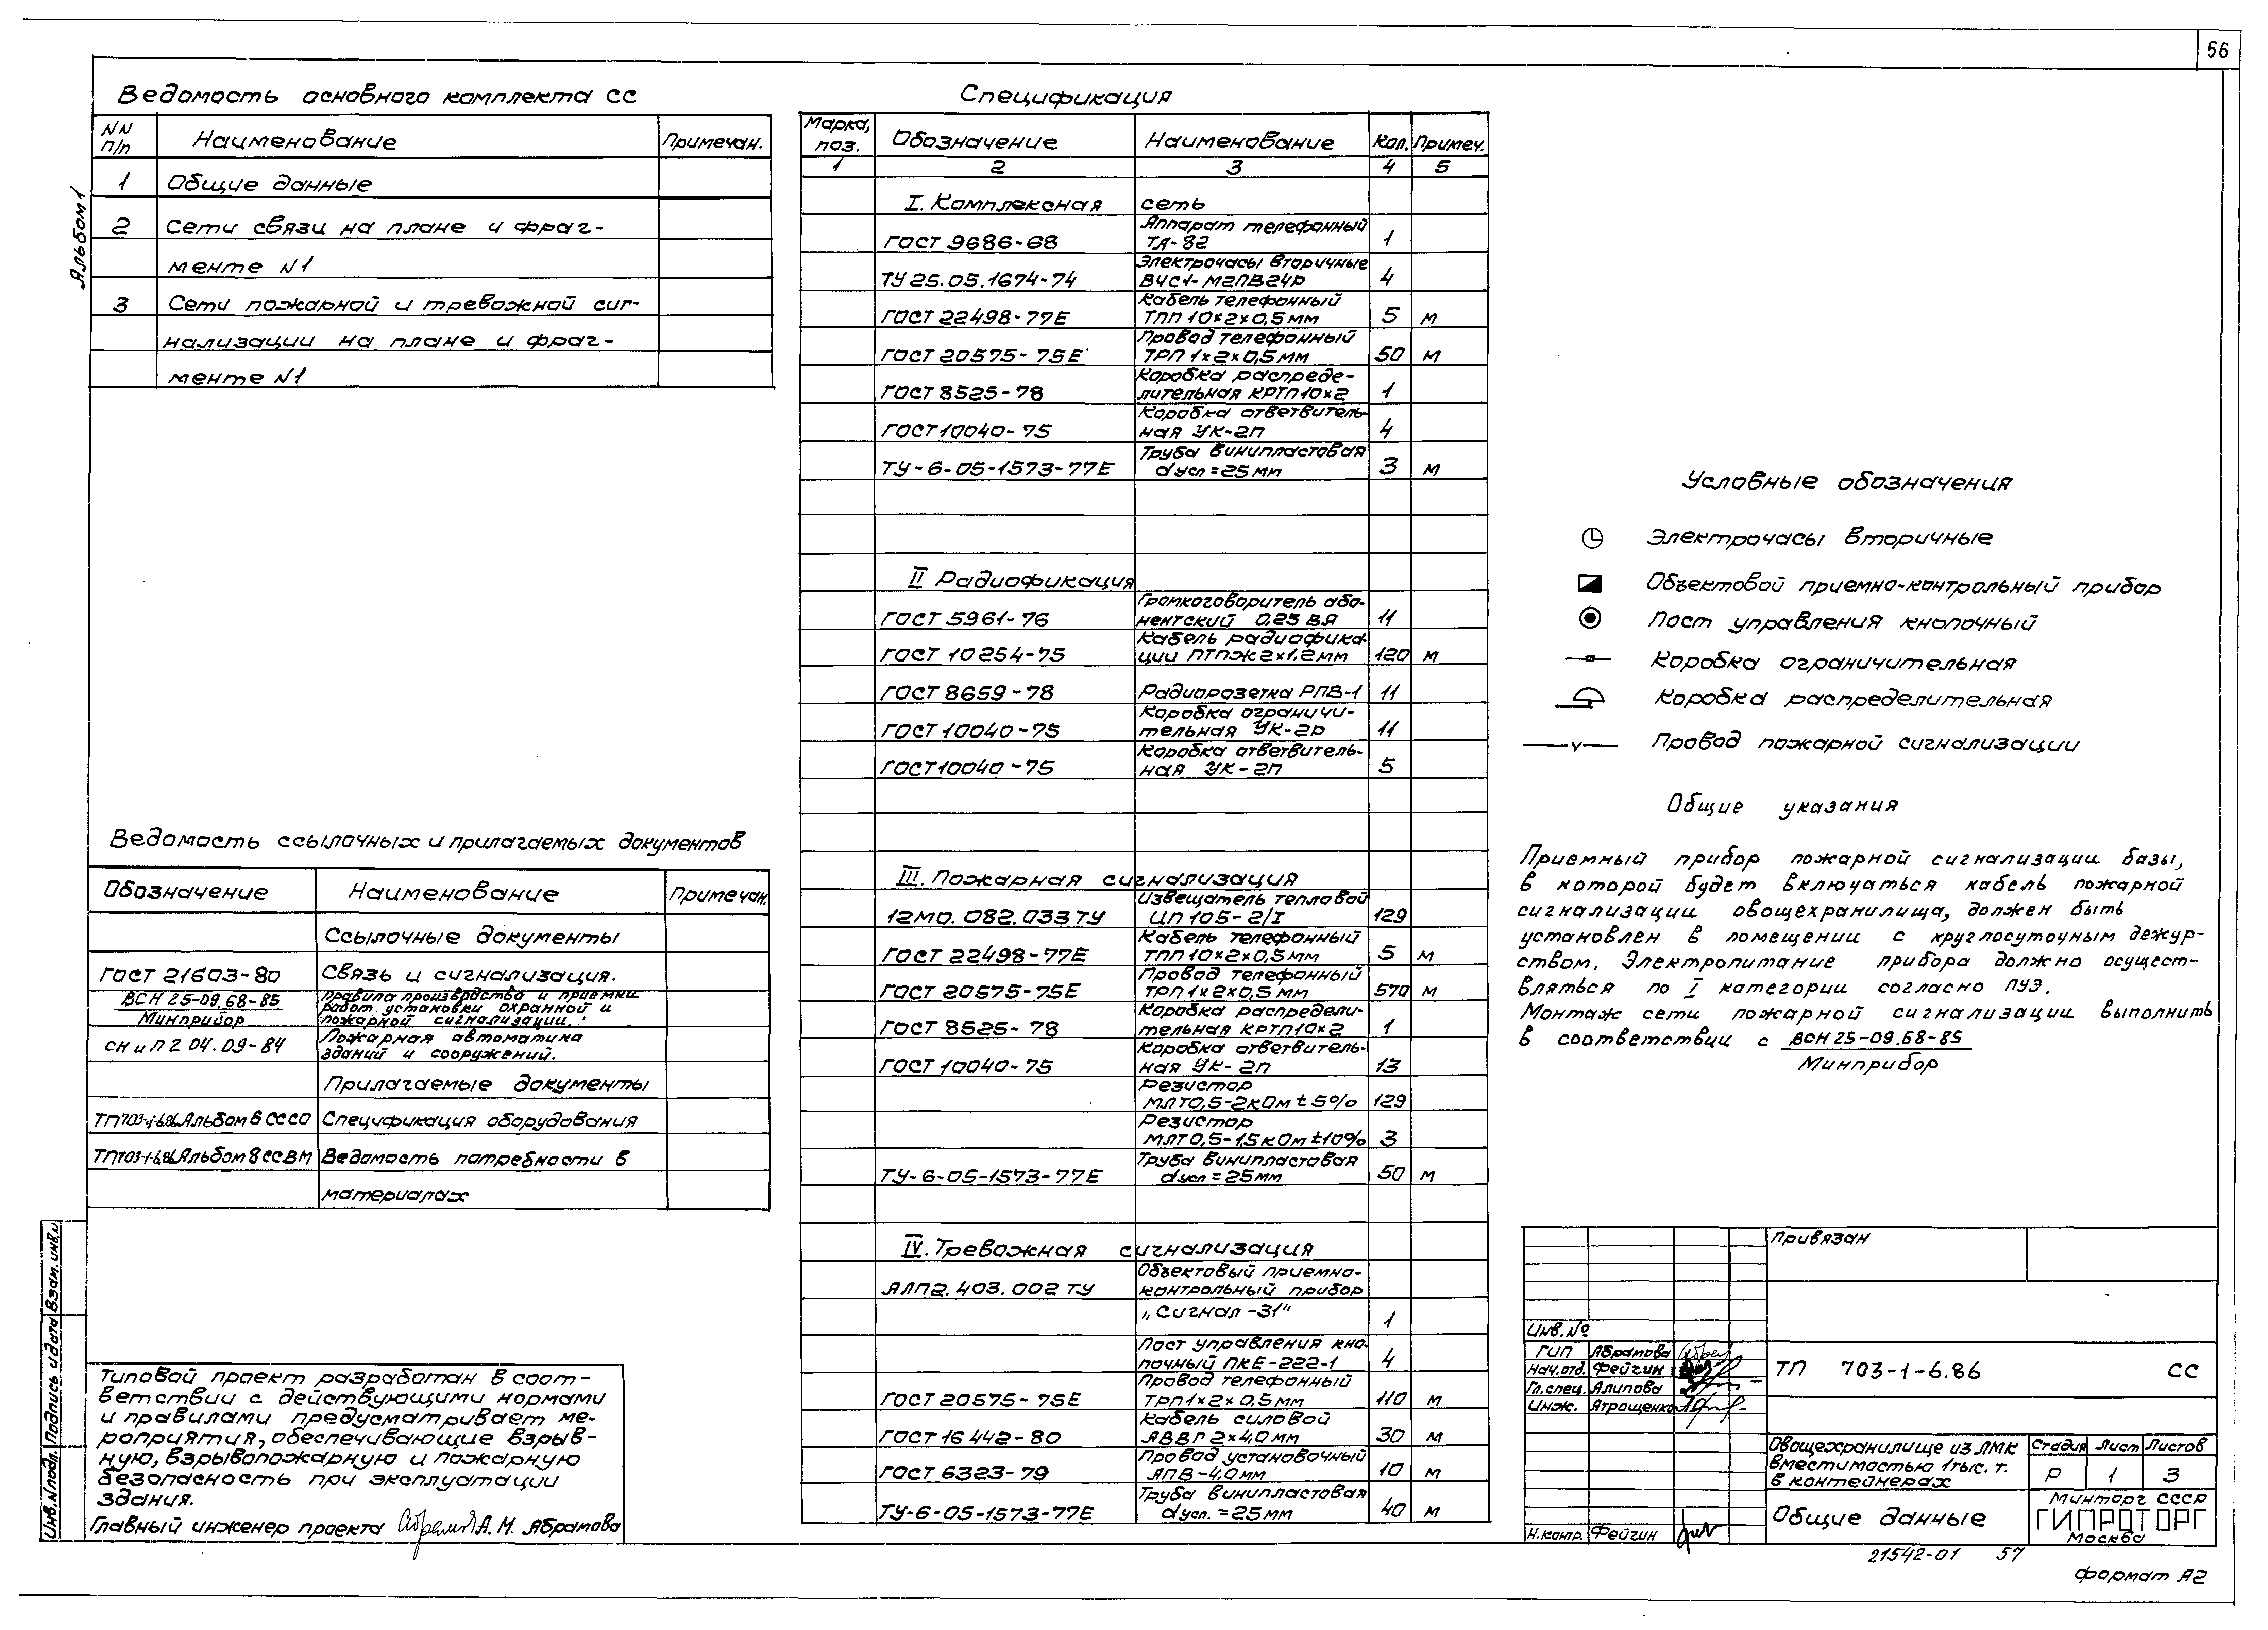 56
Альбом 1
Ведомость основного комплекта СС
NN п/п Наименование Примечан.
1 Общие данные
2 Сети связи на плане и фраг-
менте N1
3 Сети пожарной и тревожной сиг-
нализации на плане и фраг-
менте N1
Ведомость ссылочных и прилагаемых документов
Обозначение Наименование Примечан.
Ссылочные документы
ГОСТ 21603-80 Связь и сигнализация.
ВСН 25-09.68-85 Правила производства и приемки
Минприбор работ установки охранной и
пожарной сигнализации.
СНиП 2 04.09-84 Пожарная автоматика
зданий и сооружений.
Прилагаемые документы
ТП703-1-6.86 Альбом 6 СС СО Спецификация оборудования
ТП703-1-6.86 Альбом 8 СС ВМ Ведомость потребности в
материалах
Типовой проект разработан в соот-
ветствии с действующими нормами
и правилами предусматривает ме-
роприятия, обеспечивающие взрыв-
ную, взрывопожарную и пожарную
безопасность при эксплуатации
здания.
Главный инженер проекта А.М. Абрамова
Инв.N подл. Подпись и дата Взам.инв.N
Спецификация
Марка, поз. Обозначение Наименование Кол. Примеч.
1 2 3 4 5
I. Комплексная сеть
Аппарат телефонный
ГОСТ 9686-68 ТА-82 1
Электрочасы вторичные
ТУ 25.05.1674-74 ВЧС1-М2ПВ24Р 4
Кабель телефонный
ГОСТ 22498-77Е ТПП 10×2×0,5 мм 5 м
Провод телефонный
ГОСТ 20575-75Е ТРП 1×2×0,5 мм 50 м
Коробка распреде-
ГОСТ 8525-78 лительная КРТП10×2 1
Коробка ответвитель-
ГОСТ 10040-75 ная УК-2П 4
Труба винипластовая
ТУ-6-05-1573-77Е dусл=25мм 3 м
II Радиофикация
Громкоговоритель або-
ГОСТ 5961-76 нентский 0,25 ВА 11
Кабель радиофика-
ГОСТ 10254-75 ции ПТПЖ2×1.2мм 120 м
ГОСТ 8659-78 Радиорозетка РПВ-1 11
Коробка ограничи-
ГОСТ 10040-75 тельная УК-2Р 11
Коробка ответвитель-
ГОСТ 10040-75 ная УК-2П 5
III. Пожарная сигнализация
Извещатель тепловой
12МО.082.033 ТУ ИП 105-2/I 129
Кабель телефонный
ГОСТ 22498-77Е ТПП 10×2×0,5 мм 5 м
Провод телефонный
ГОСТ 20575-75Е ТРП 1×2×0,5 мм 570 м
Коробка распредели-
ГОСТ 8525-78 тельная КРТП10×2 1
Коробка ответвитель-
ГОСТ 10040-75 ная УК-2П 13
Резистор
МЛТ0,5-2кОм ± 5% 129
Резистор
МЛТ0,5-1,5кОм ±10% 3
Труба винипластовая
ТУ-6-05-1573-77Е dусл=25мм 50 м
IV. Тревожная сигнализация
Объектовый приемно-
АЛП2.403.002 ТУ контрольный прибор
„Сигнал-31" 1
Пост управления кно-
почный ПКЕ-222-1 4
Провод телефонный
ГОСТ 20575-75Е ТРП1×2×0,5мм 110 м
Кабель силовой
ГОСТ 16442-80 АВВГ 2×4,0мм 30 м
Провод установочный
ГОСТ 6323-79 АПВ-4,0мм 10 м
Труба винипластовая
ТУ-6-05-1573-77Е dусл.=25мм 40 м
Условные обозначения
Электрочасы вторичные
Объектовой приемно-контрольный прибор
Пост управления кнопочный
Коробка ограничительная
Коробка распределительная
Провод пожарной сигнализации
Общие указания
Приемный прибор пожарной сигнализации базы,
в которой будет включаться кабель пожарной
сигнализации овощехранилища, должен быть
установлен в помещении с круглосуточным дежур-
ством. Электропитание прибора должно осущест-
вляться по I категории согласно ПУЭ.
Монтаж сети пожарной сигнализации выполнить
в соответствии с ВСН 25-09.68-85
Минприбор
Привязан
Инв.№
ГИП Абрамова
Нач.отд. Фейгин
Гл.спец. Алипова
Инж. Атрощенко
Н.контр. Фейгин
ТП 703-1-6.86 СС
Овощехранилище из ЛМК
вместимостью 1 тыс. т.
в контейнерах
Стадия Лист Листов
Р 1 3
Общие данные
Минторг СССР
ГИПРОТОРГ
Москва
21542-01 57
Формат А2